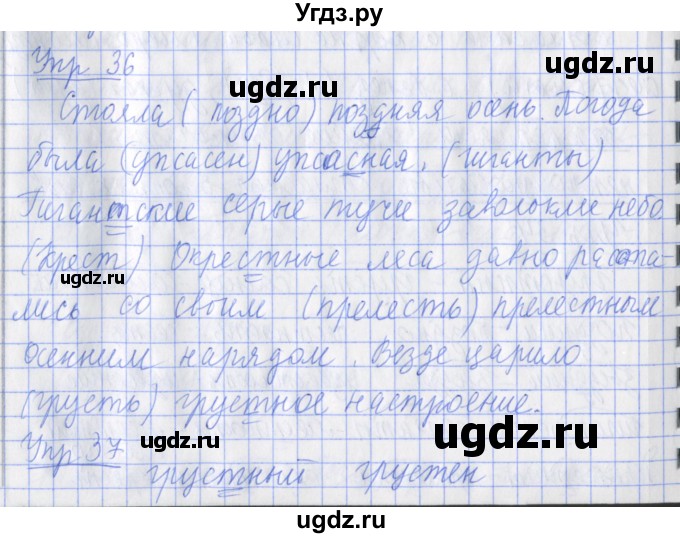 Угдз.ру
Упр 36
ugdz.ru ugdz.ru
Стояла (поздно) поздняя осень. Погода
была (упсасен) упсасная. (гиганты)
Гигантские серые тучи заволокли небо.
(Крест) Окрестные леса давно расста-
ugdz.ru
лись со своим (прелесть) прелестным
осенним нарядом. Везде царило
(грусть) грустное настроение.
ugdz.ru ugdz.ru
Упр 37
грустный грустен
ugdz.ru
ugdz.ru